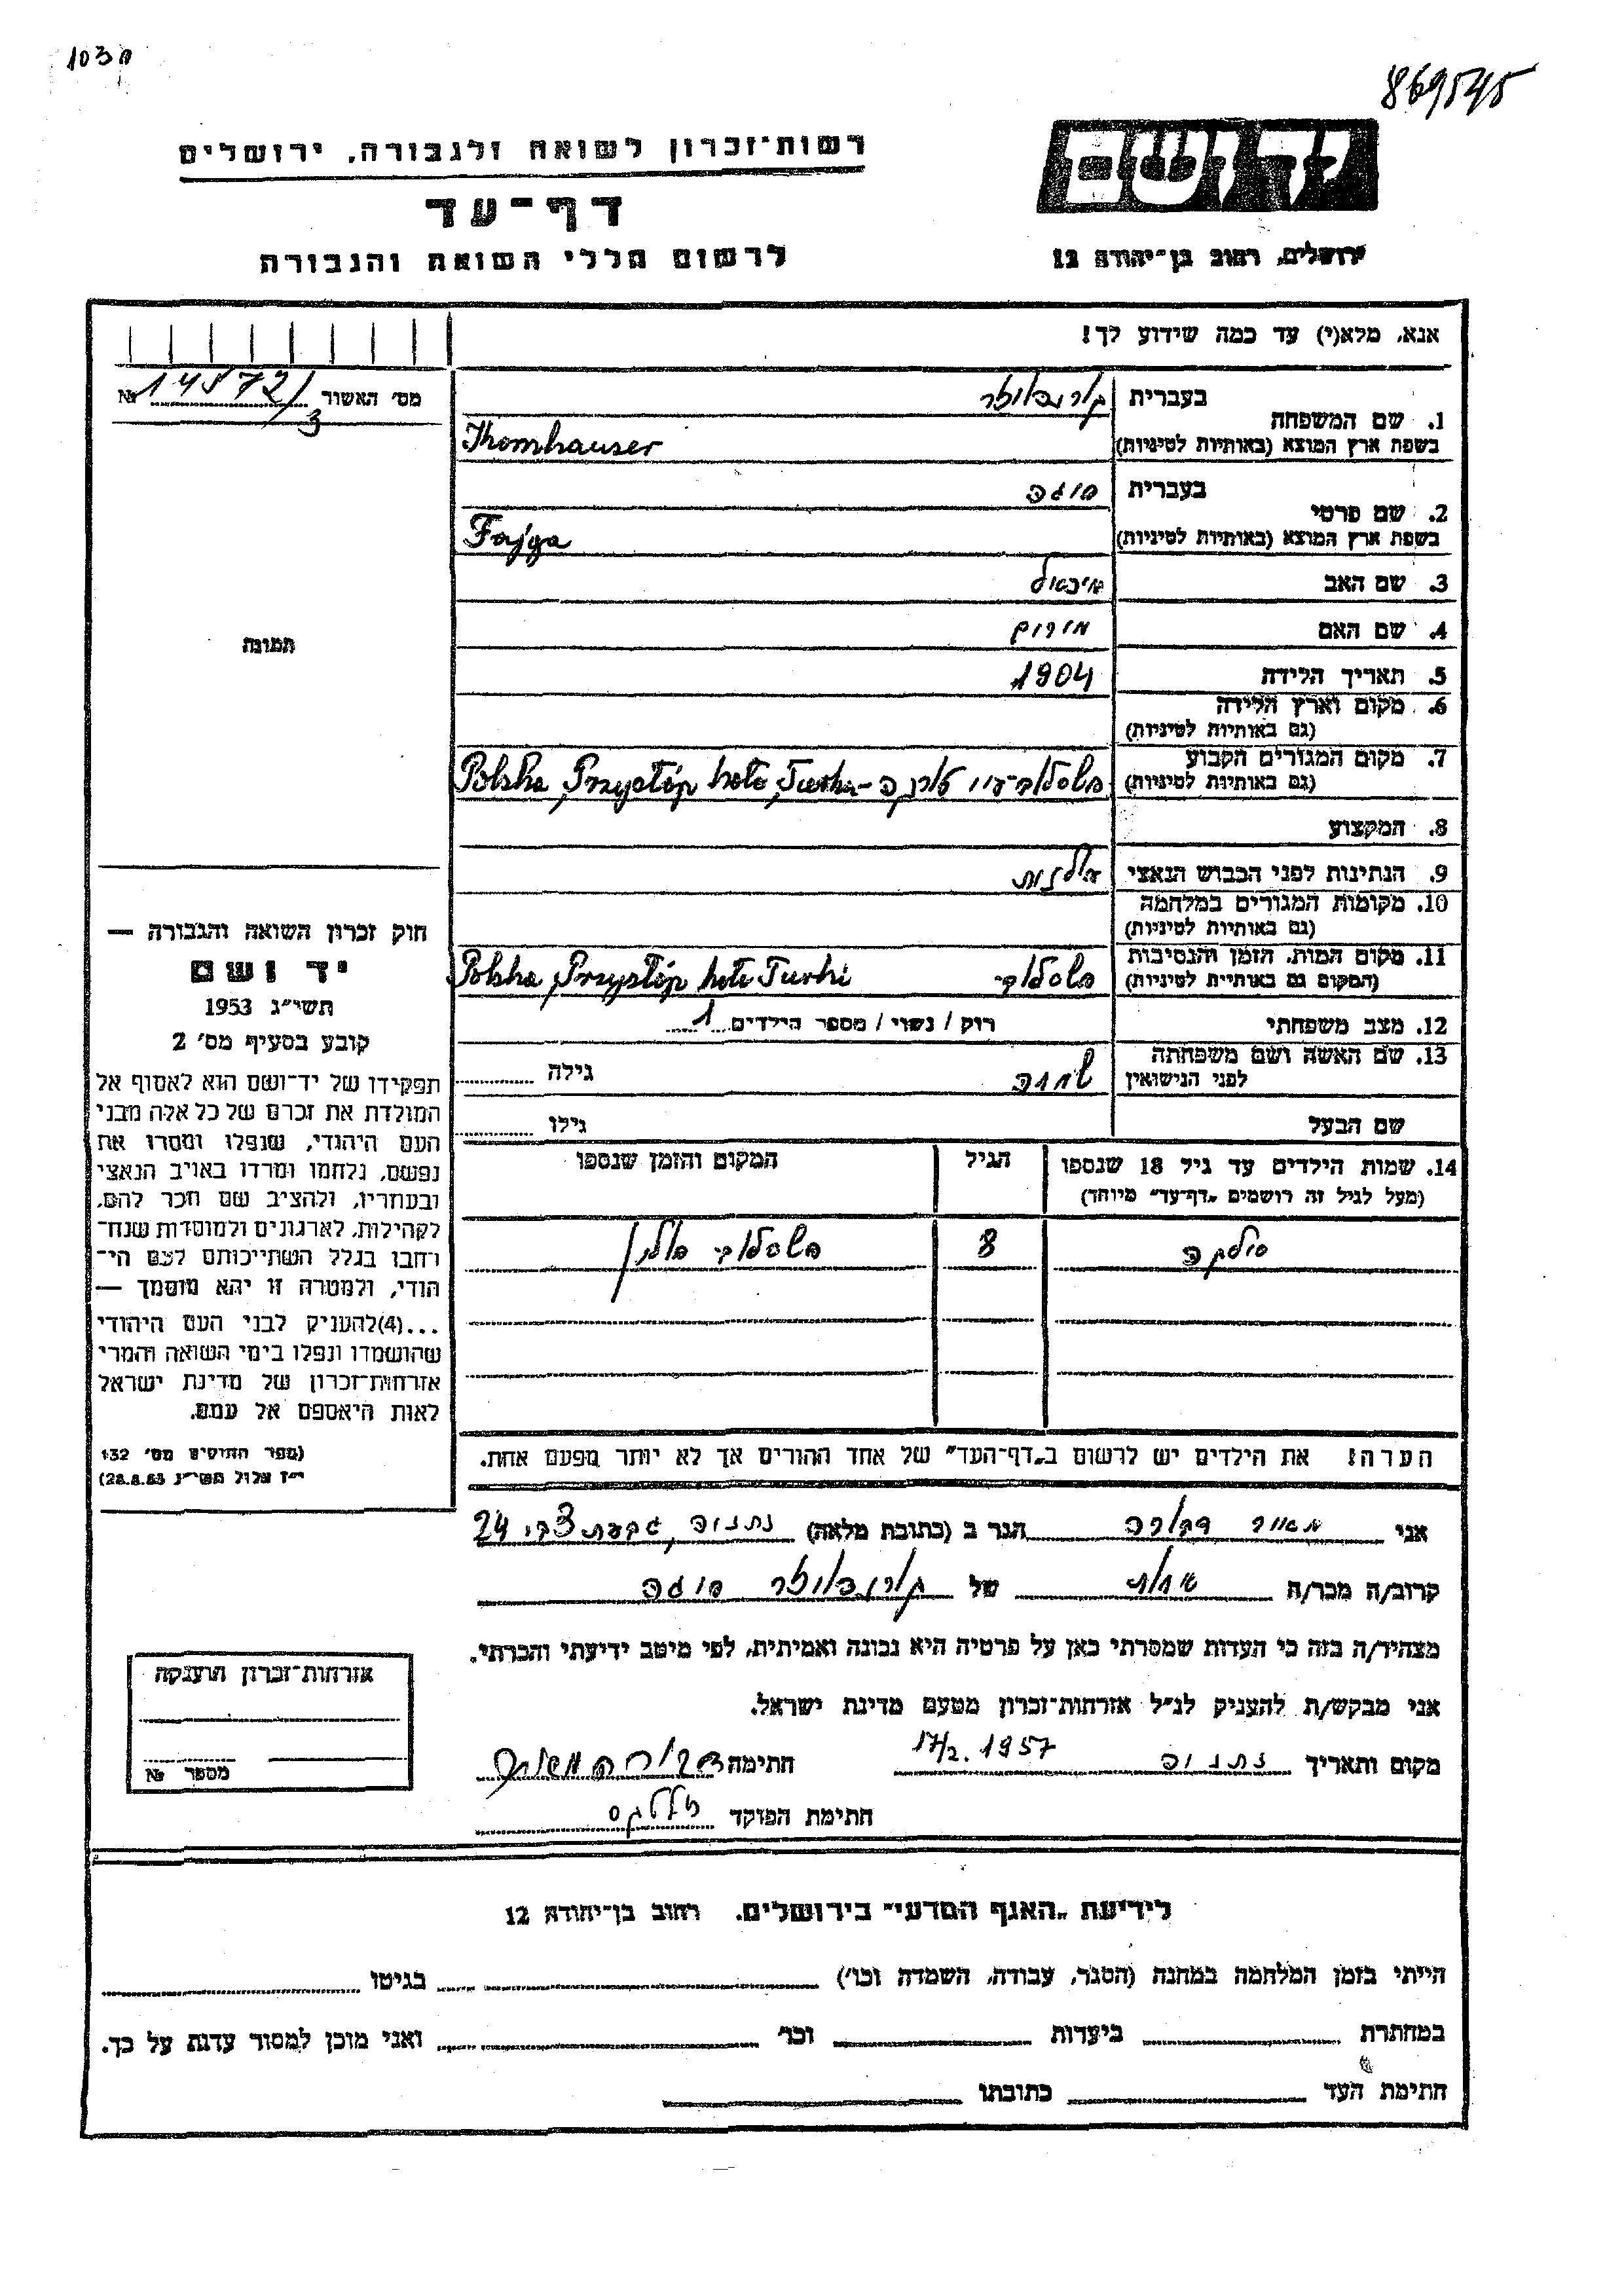 869545
רשות־זכרון לשואה ולגבורה, ירושלים
דף־עד
לרשום חללי השואה והגבורה
יד ושם
ירושלים, רחוב בן־יהודה 12
אנא, מלא(י) עד כמה שידוע לך!
מס׳ האשור 14572/3 №
1. שם המשפחה
בעברית
בשפת ארץ המוצא (באותיות לטיניות) Thornhauser
2. שם פרטי
בעברית
בשפת ארץ המוצא (באותיות לטיניות) Fajga
3. שם האב מיכאל
4. שם האם מרים
5. תאריך הלידה 1904
6. מקום וארץ הלידה
(גם באותיות לטיניות)
7. מקום המגורים הקבוע
(גם באותיות לטיניות) Polska, Przystóp koło Turka
8. המקצוע
9. הנתינות לפני הכבוש הנאצי פולנית
10. מקומות המגורים במלחמה
(גם באותיות לטיניות)
11. מקום המות, הזמן והנסיבות
(המקום גם באותיות לטיניות) Polska, Przystóp koło Turki
12. מצב משפחתי רוק / נשוי / מספר הילדים 1
13. שם האשה ושם משפחתה
לפני הנישואין גילה
שם הבעל גילו
14. שמות הילדים עד גיל 18 שנספו
(מעל לגיל זה רושמים „דף־עד״ מיוחד)
הגיל
המקום והזמן שנספו
8
הערה: את הילדים יש לרשום ב„דף־העד״ של אחד ההורים אך לא יותר מפעם אחת.
תמונה
חוק זכרון השואה והגבורה —
יד ושם
תשי״ג 1953
קובע בסעיף מס׳ 2
תפקידו של יד־ושם הוא לאסוף אל
המולדת את זכרם של כל אלה מבני
העם היהודי, שנפלו ומסרו את
נפשם, נלחמו ומרדו באויב הנאצי
ובעוזריו, ולהציב שם וזכר להם,
לקהילות, לארגונים ולמוסדות שנח־
רחבו בגלל השתייכותם לעם הי־
הודי, ולמטרה זו יהא מוסמך —
...(4)להעניק לבני העם היהודי
שהושמדו ונפלו בימי השואה והמרי
אזרחות־זכרון של מדינת ישראל
לאות היאספם אל עמם.
(ספר החוקים מס׳ 132
י״ז אלול תשי״ג 28.8.53)
אני מאור דבורה הגר ב (כתובת מלאה) נתניה, גבעת צבי 24
קרוב/ה מכר/ה אחות של
מצהיר/ה בזה כי העדות שמסרתי כאן על פרטיה היא נכונה ואמיתית, לפי מיטב ידיעתי והכרתי.
אני מבקש/ת להעניק לנ״ל אזרחות־זכרון מטעם מדינת ישראל.
מקום ותאריך נתניה 17/2.1957 חתימה
חתימת הפוקד
אזרחות־זכרון הוענקה
מספר №
לידיעת „האגף המדעי״ בירושלים, רחוב בן־יהודה 12
הייתי בזמן המלחמה במחנה (הסגר, עבודה, השמדה וכו׳) בגיטו
במחתרת ביערות וכו׳ ואני מוכן למסור עדות על כך.
חתימת העד כתובתו